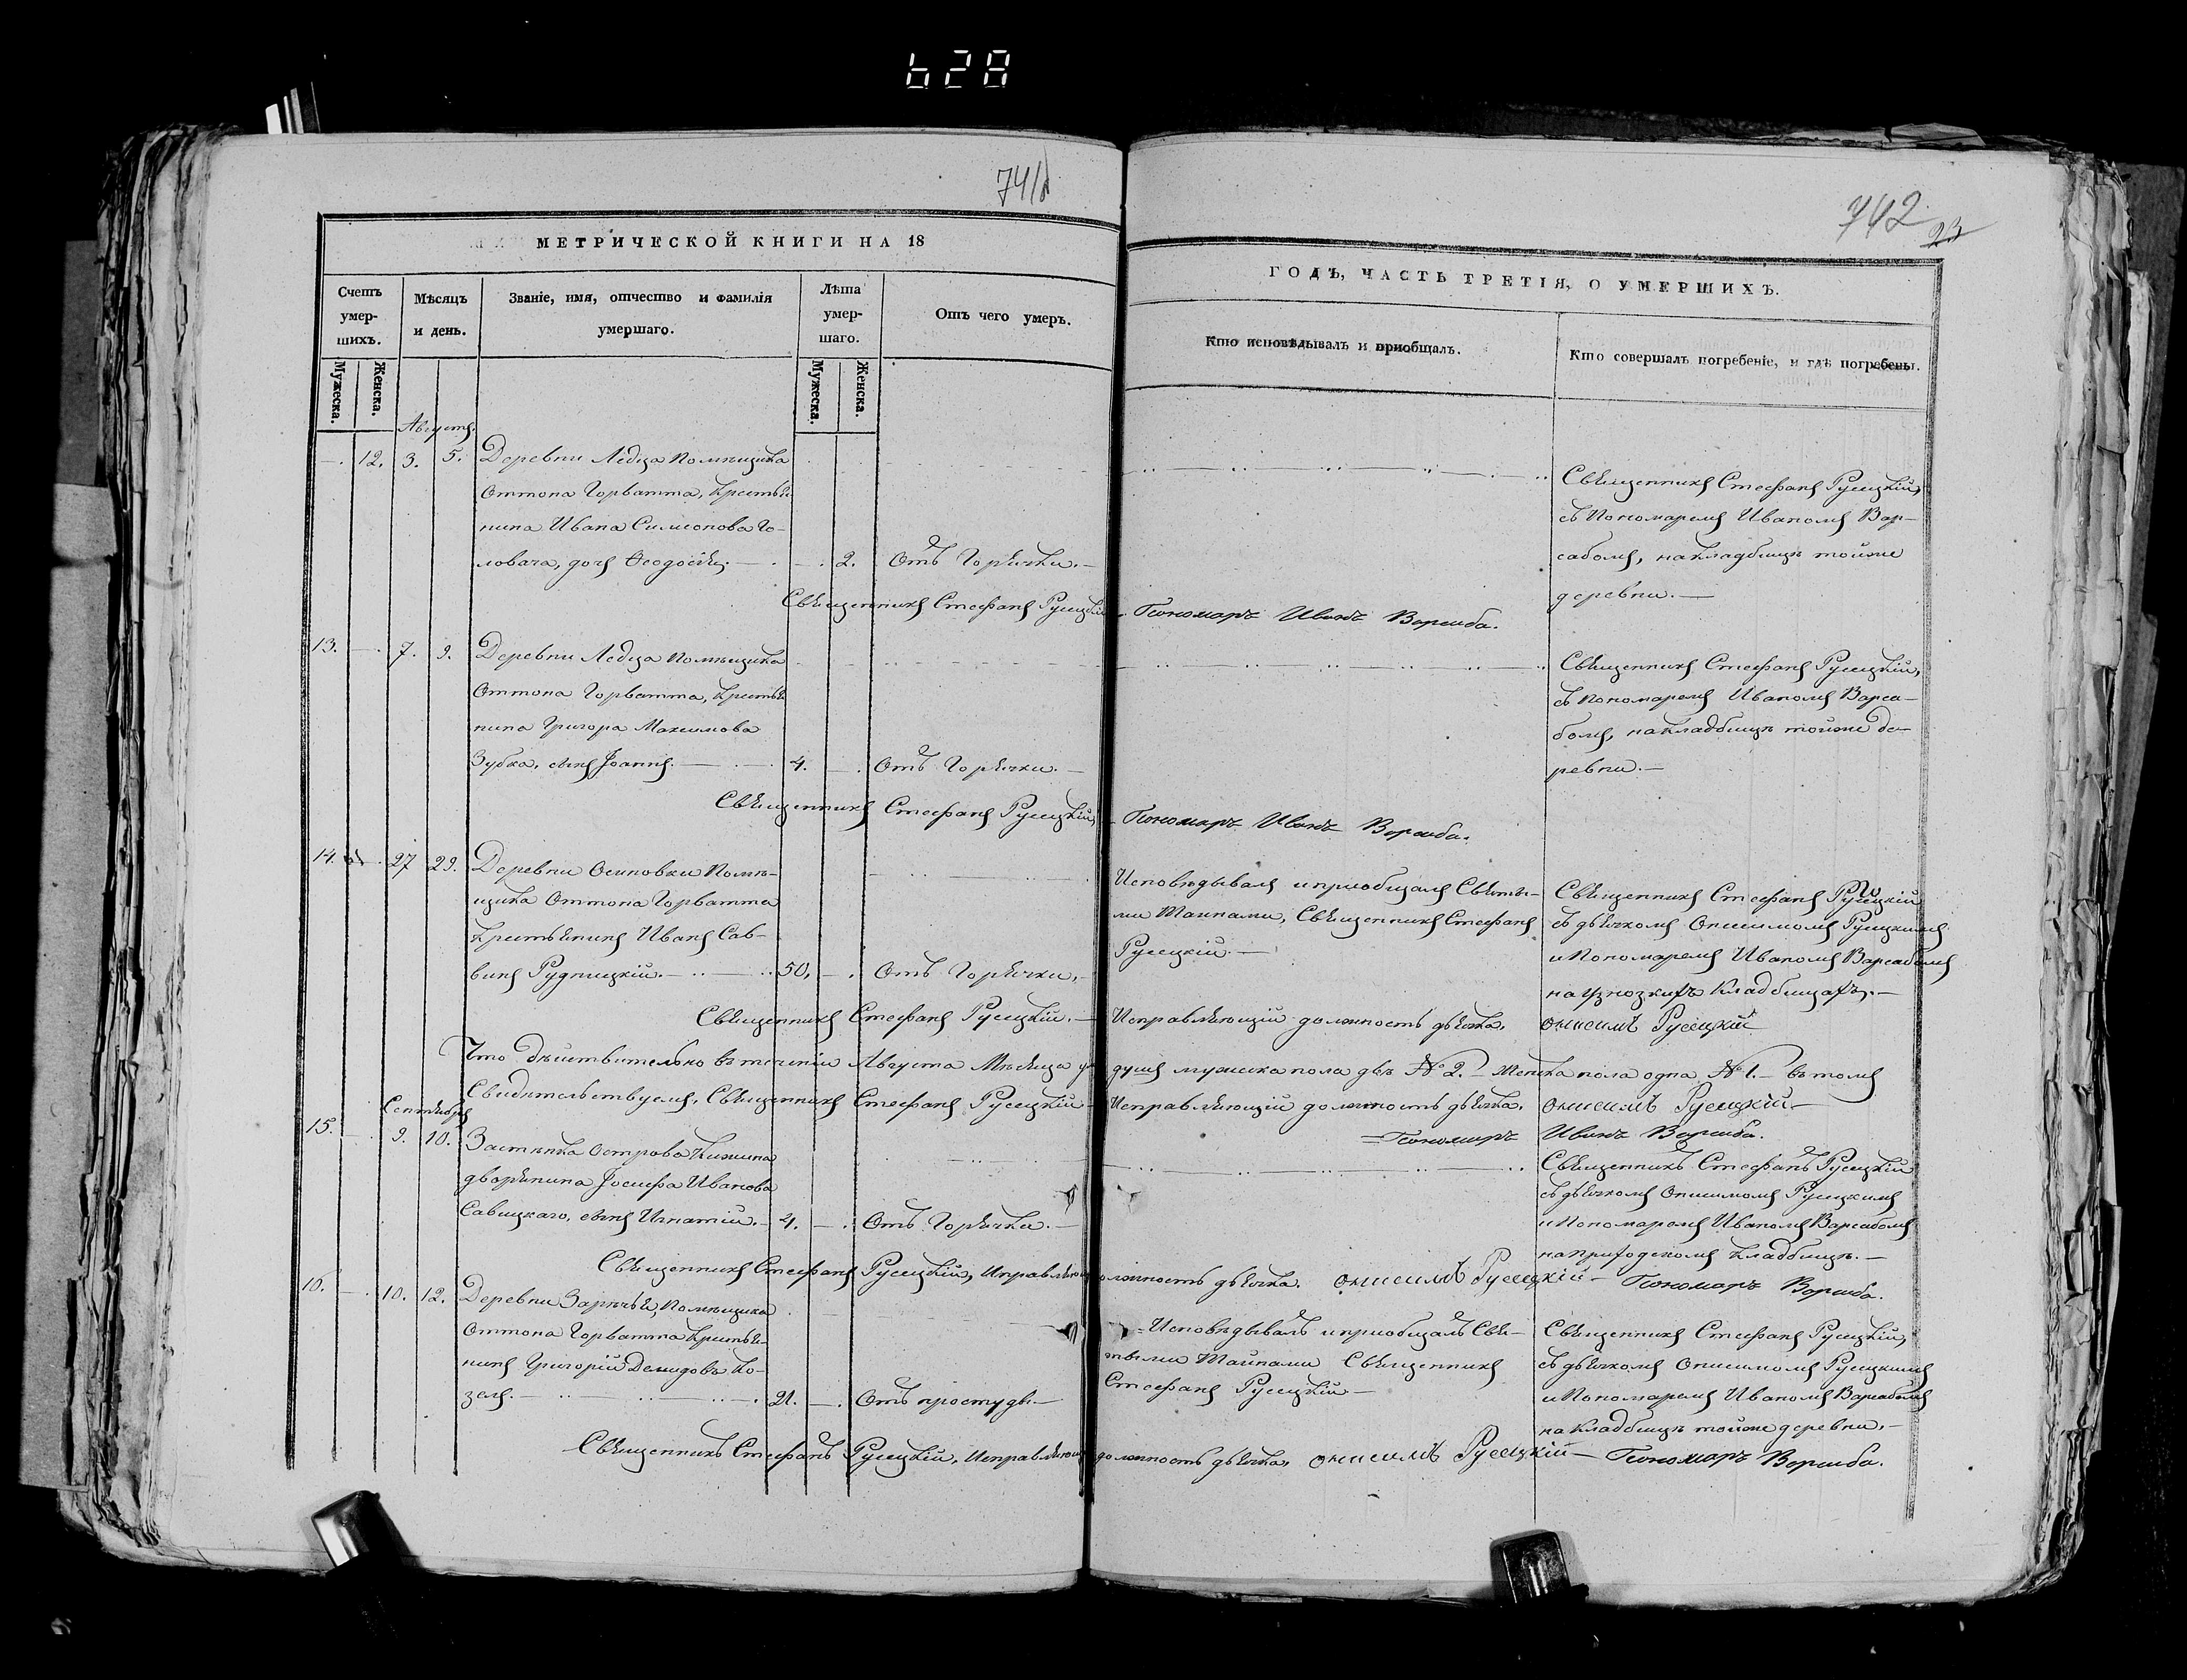 628
741
742
23
МЕТРИЧЕСКОЙ КНИГИ НА 18
ГОДЪ, ЧАСТЬ ТРЕТІЯ, О УМЕРШИХЪ.
Счетъ умер-шихъ.
Мѣсяцъ и день.
Званіе, имя, отчество и фамилія умершаго.
Лѣта умер-шаго.
Отъ чего умеръ.
Кто исповѣдывалъ и пріобщалъ.
Кто совершалъ погребеніе, и гдѣ погребены.
Мужеска.
Женска.
Мужеска.
Женска.
Августъ.
12. 3. 5. Деревни Ледца Помѣщика
Оттона Горватта, Крестья-
нина Ивана Симеонова Го-
ловача, дочь Ѳеодосія. 2. Отъ Горячки.
Священникъ Стефанъ Русецкій,
съ Пономаремъ Иваномъ Вар-
сабомъ, на кладбищѣ тойже
деревни.
Священникъ Стефанъ Русецкій Пономарь Иванъ Ворсаба.
13. 7. 9. Деревни Ледца Помѣщика
Оттона Горватта, Крестья-
нина Григора Максимова
Зубка, сынъ Іоаннъ. 4. Отъ Горячки.
Священникъ Стефанъ Русецкій,
съ Пономаремъ Иваномъ Варса-
бомъ, на кладбищѣ тойже де-
ревни.
Священникъ Стефанъ Русецкій, Пономарь Иванъ Ворсаба.
14. 27 29. Деревни Осиповки Помѣ-
щика Оттона Горватта
Крестьянинъ Иванъ Сав-
винъ Рудницкій. 50. Отъ Горячки.
Исповѣдывалъ и пріобщалъ Святы-
ми Тайнами, Священникъ Стефанъ
Русецкій.
Священникъ Стефанъ Русецкій
съ дьячкомъ Онисимомъ Русецкимъ
и Пономаремъ Иваномъ Варсабомъ
на кладбищахъ.
Священникъ Стефанъ Русецкій. Исправляющій должность дьячка, Онисимъ Русецкій
Что дѣйствительно въ теченіи Августа Мѣсяца душъ мужска пола двѣ № 2. Женска пола одна № 1. въ томъ
Свидѣтельствуемъ, Священникъ Стефанъ Русецкій Исправляющій должность дьячка, Онисимъ Русецкій
Пономарь Иванъ Ворсаба.
Сентябрь
15. 9. 10. Застѣнка Острова
дворянина Іосифа Иванова
Савицкаго, сынъ Игнатій. 4. Отъ Горячки.
Священникъ Стефанъ Русецкій
съ дьячкомъ Онисимомъ Русецкимъ
и Пономаремъ Иваномъ Варсабомъ
на приходскомъ кладбищѣ.
Священникъ Стефанъ Русецкій, должность дьячка. Онисимъ Русецкій Пономарь Ворсаба.
16. 10. 12. Деревни Зарѣчья, Помѣщика
Оттона Горватта Крестья-
нинъ Григорій Демидовъ Ко-
зелъ. 21. Отъ простуды
Исповѣдывалъ и пріобщалъ Свя-
тыми Тайнами Священникъ
Стефанъ Русецкій
Священникъ Стефанъ Русецкій,
съ дьячкомъ Онисимомъ Русецкимъ
и Пономаремъ Иваномъ Варсабомъ
на кладбищѣ тойже деревни.
Священникъ Стефанъ Русецкій, должность дьячка, Онисимъ Русецкій Пономарь Ворсаба.